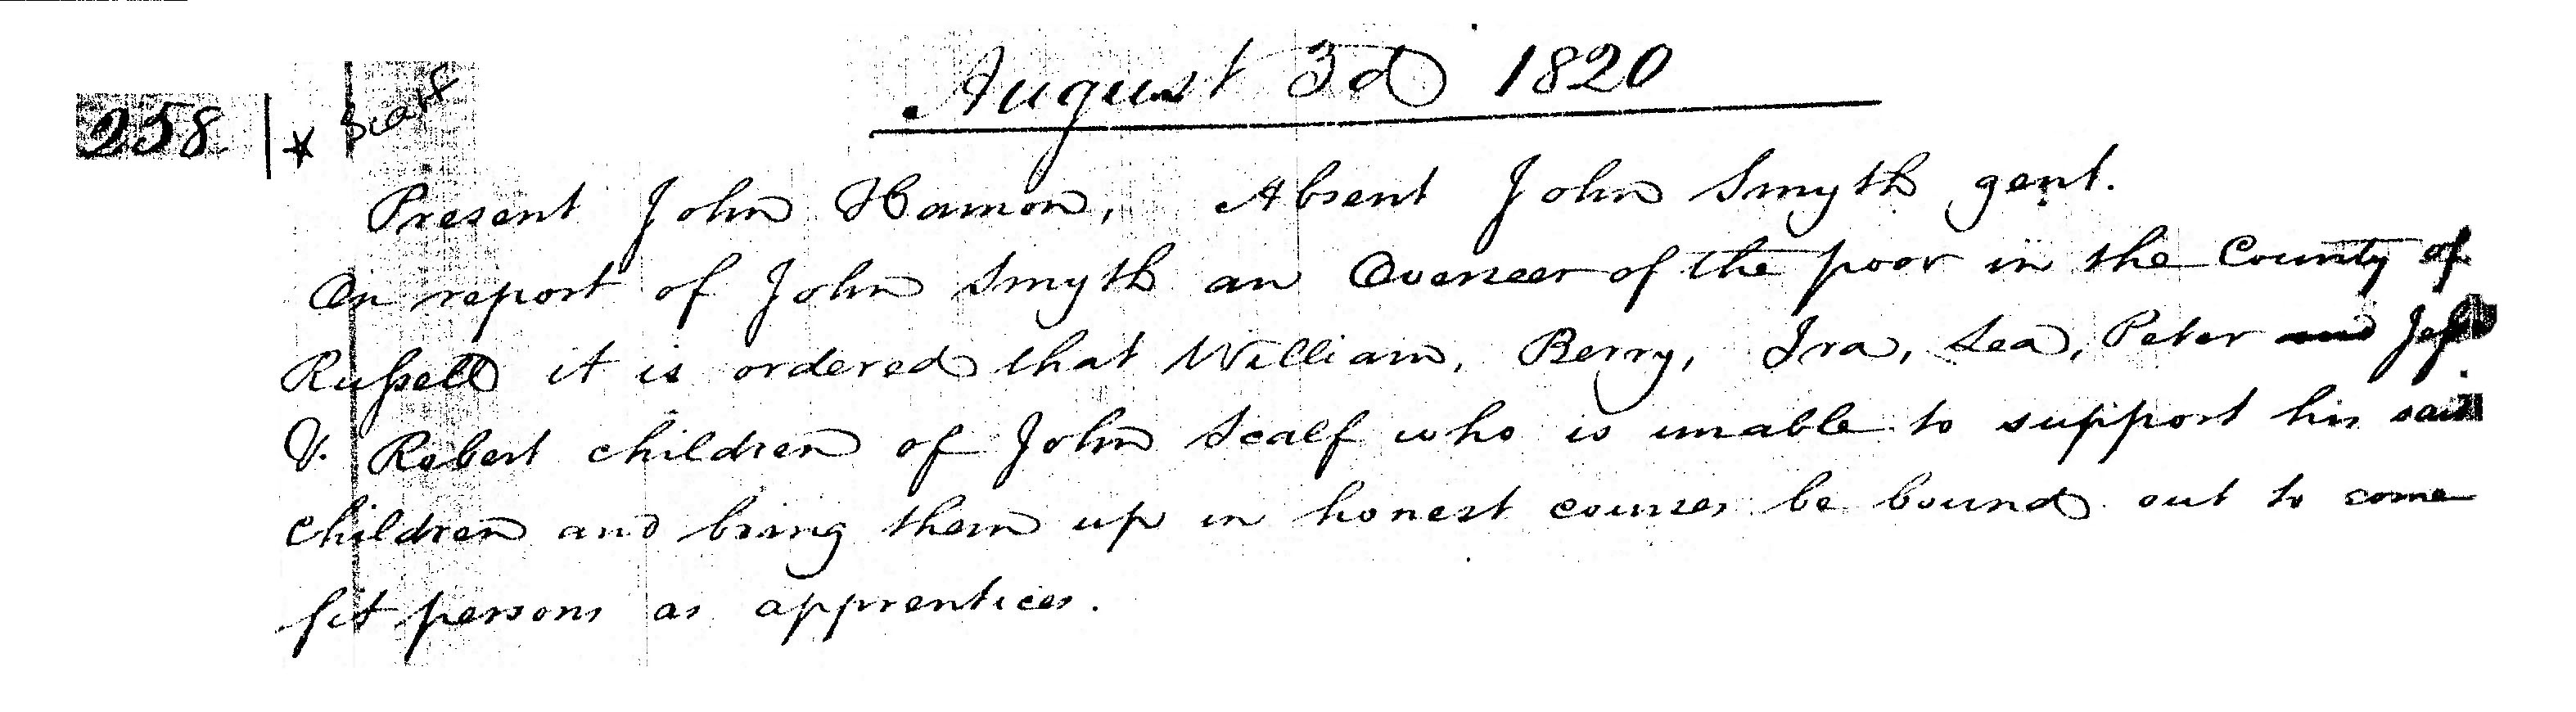 August 3d 1820
258 * Scalf
Present John Hamon, Absent John Smyth gent.
On report of John Smyth an Overseer of the poor in the County of
Russell it is ordered that William, Berry, Ira, Lea, Peter and
&. Robert children of John Scalf who is unable to support his said
children and bring them up in honest courses be bound out to come
fit persons as apprentices.